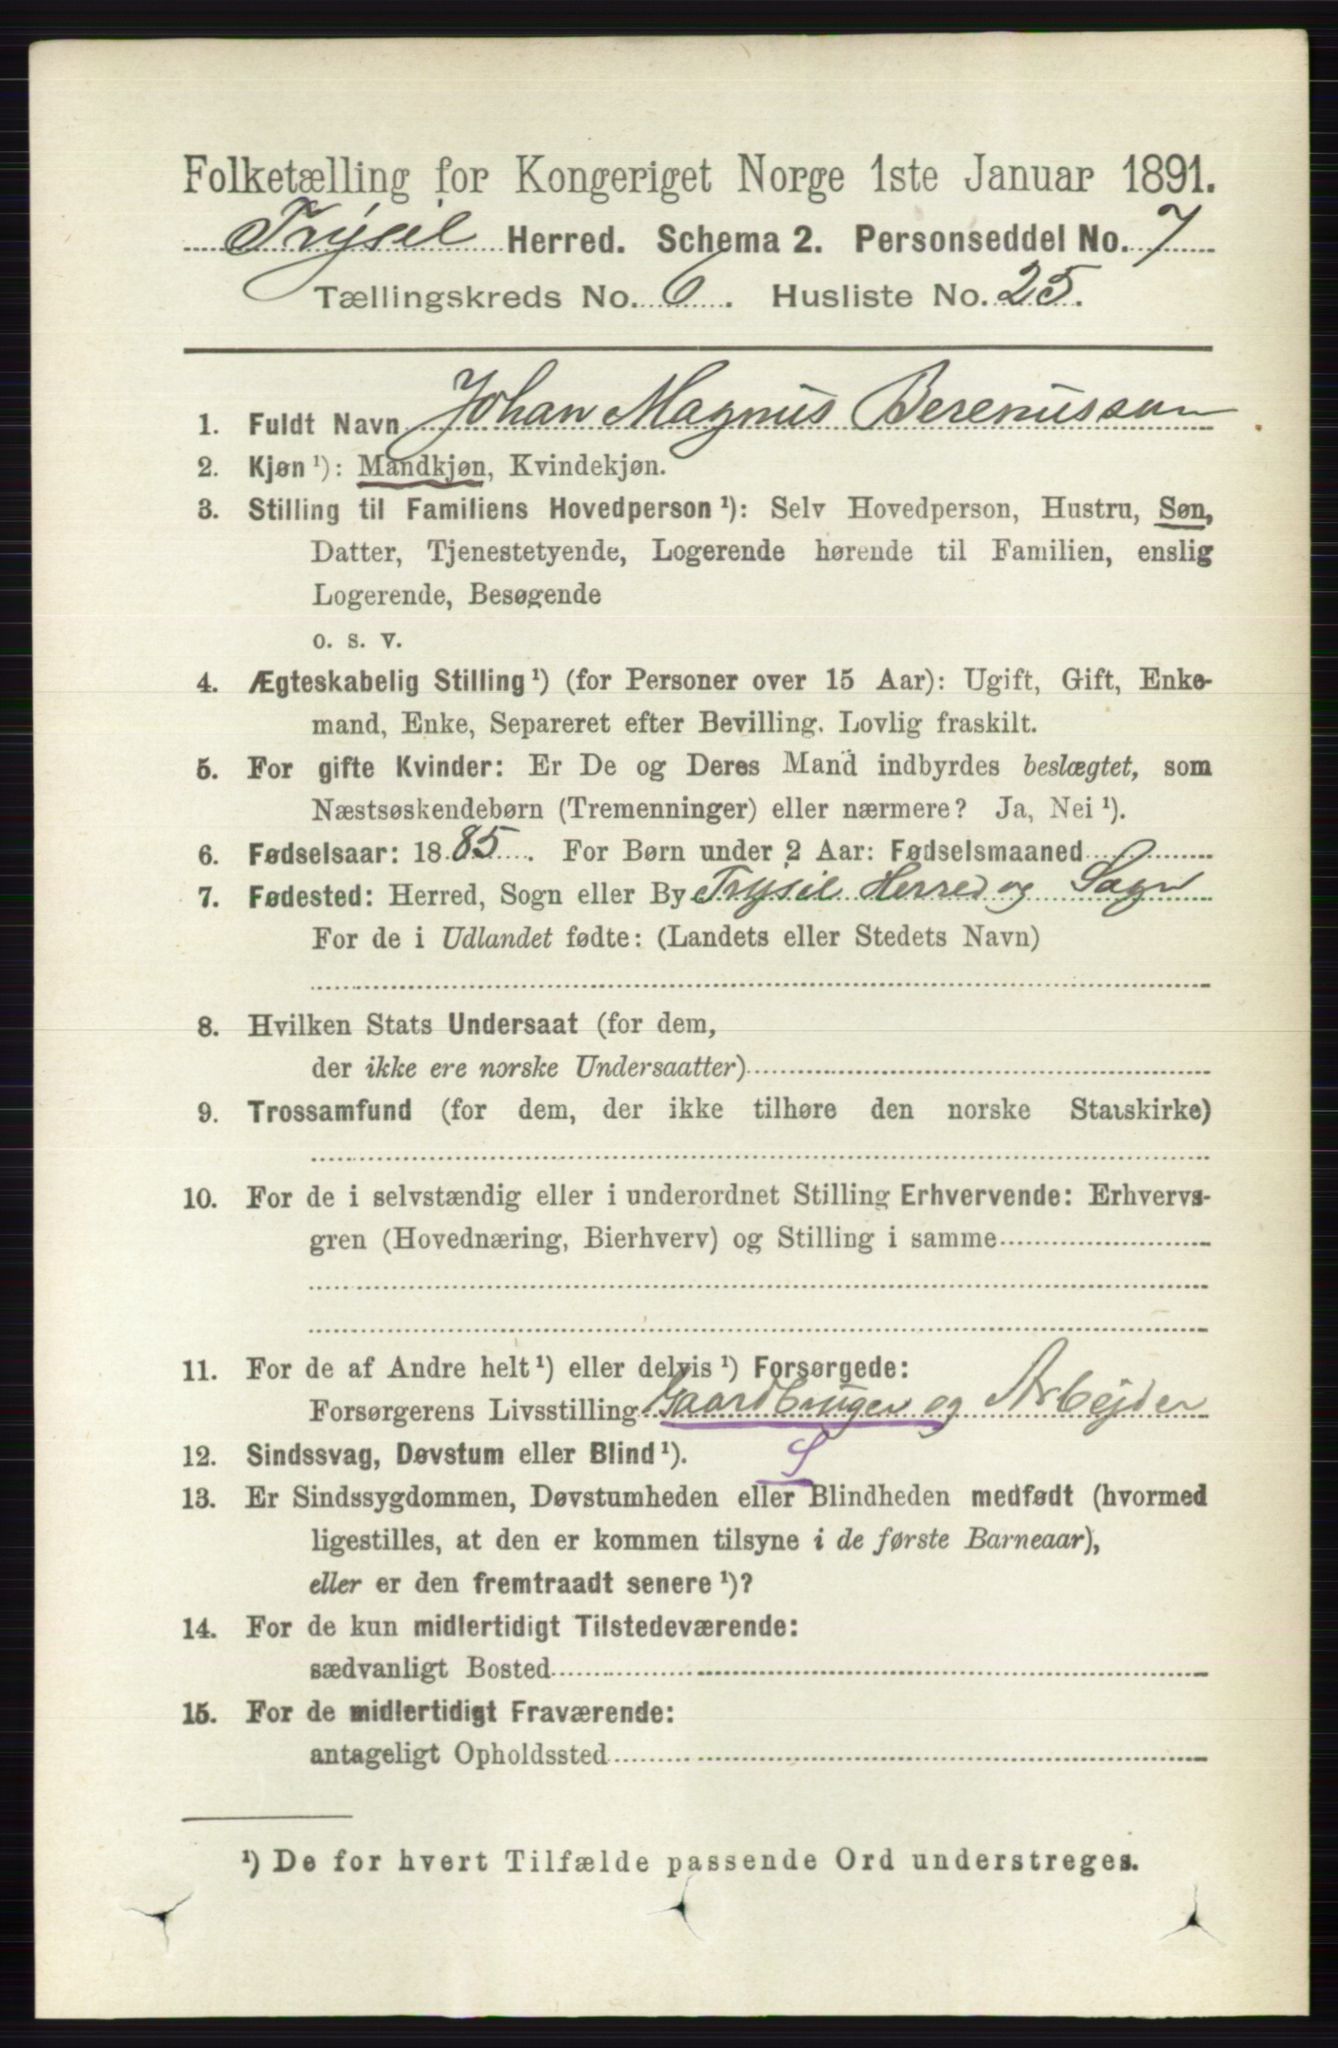 Folketælling for Kongeriget Norge 1ste Januar 1891.
Trysil Herred. Schema 2. Personseddel No. 7
Tællingskreds No. 6. Husliste No. 25.
1. Fuldt Navn Johan Magnus Berenussen
2. Kjøn ¹): Mandkjøn, Kvindekjøn.
3. Stilling til Familiens Hovedperson ¹): Selv Hovedperson, Hustru, Søn,
Datter, Tjenestetyende, Logerende hørende til Familien, enslig
Logerende, Besøgende
o. s. v.
4. Ægteskabelig Stilling ¹) (for Personer over 15 Aar): Ugift, Gift, Enke-
mand, Enke, Separeret efter Bevilling. Lovlig fraskilt.
5. For gifte Kvinder: Er De og Deres Mand indbyrdes beslægtet, som
Næstsøskendebørn (Tremenninger) eller nærmere? Ja, Nei ¹).
6. Fødselsaar: 1885. For Børn under 2 Aar: Fødselsmaaned
7. Fødested: Herred, Sogn eller By Trysil Herred og Sogn
For de i Udlandet fødte: (Landets eller Stedets Navn)
8. Hvilken Stats Undersaat (for dem,
der ikke ere norske Undersaatter)
9. Trossamfund (for dem, der ikke tilhøre den norske Statskirke)
10. For de i selvstændig eller i underordnet Stilling Erhvervende: Erhvervs-
gren (Hovednæring, Bierhverv) og Stilling i samme
11. For de af Andre helt ¹) eller delvis ¹) Forsørgede:
Forsørgerens Livsstilling Gaardbruger og Arbejder
12. Sindssvag, Døvstum eller Blind ¹). S
13. Er Sindssygdommen, Døvstumheden eller Blindheden medfødt (hvormed
ligestilles, at den er kommen tilsyne i de første Barneaar),
eller er den fremtraadt senere ¹)?
14. For de kun midlertidigt Tilstedeværende:
sædvanligt Bosted
15. For de midlertidigt Fraværende:
antageligt Opholdssted
¹) De for hvert Tilfælde passende Ord understreges.